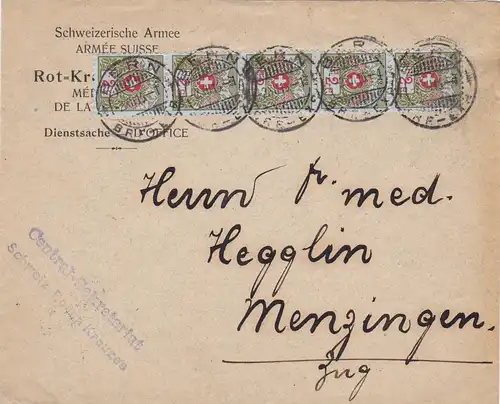 Schweizerische Armee
ARMÉE SUISSE
Rot-Kr
MÉD
DE LA
Dienstsache OFFICE
BERN
BRIEF
Herrn Dr. med.
Hegglin
Menzingen.
Zug
Central-Sekretariat
Schweiz. Roten Kreuzes